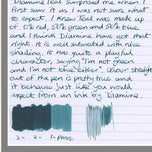 Diamine Teal surprised me when I
first saw it as I was not sure what
to expect. I knew Teal was made up
of 0% red, 50% green and 50% blue
and I think Diamine have got that
right. It is well saturated with nice
shading. It has quite a playful
character, saying "I'm not green
and I'm not blue either". Clean straight
out of the pen is pretty true and
it behaves just like you would
expect from an ink by Diamine.
3 - 2 - 1 - pass